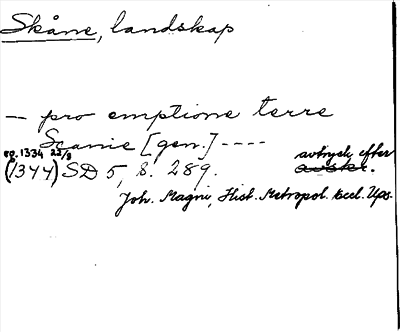 Skåne, landskap
— pro emptione terre
Scanie [gen.] ----
eg. 1334 22/8 avtryck efter
(1344) SD 5, s. 289. avskr.
Joh. Magni, Hist. Metropol. Eccl. Ups.